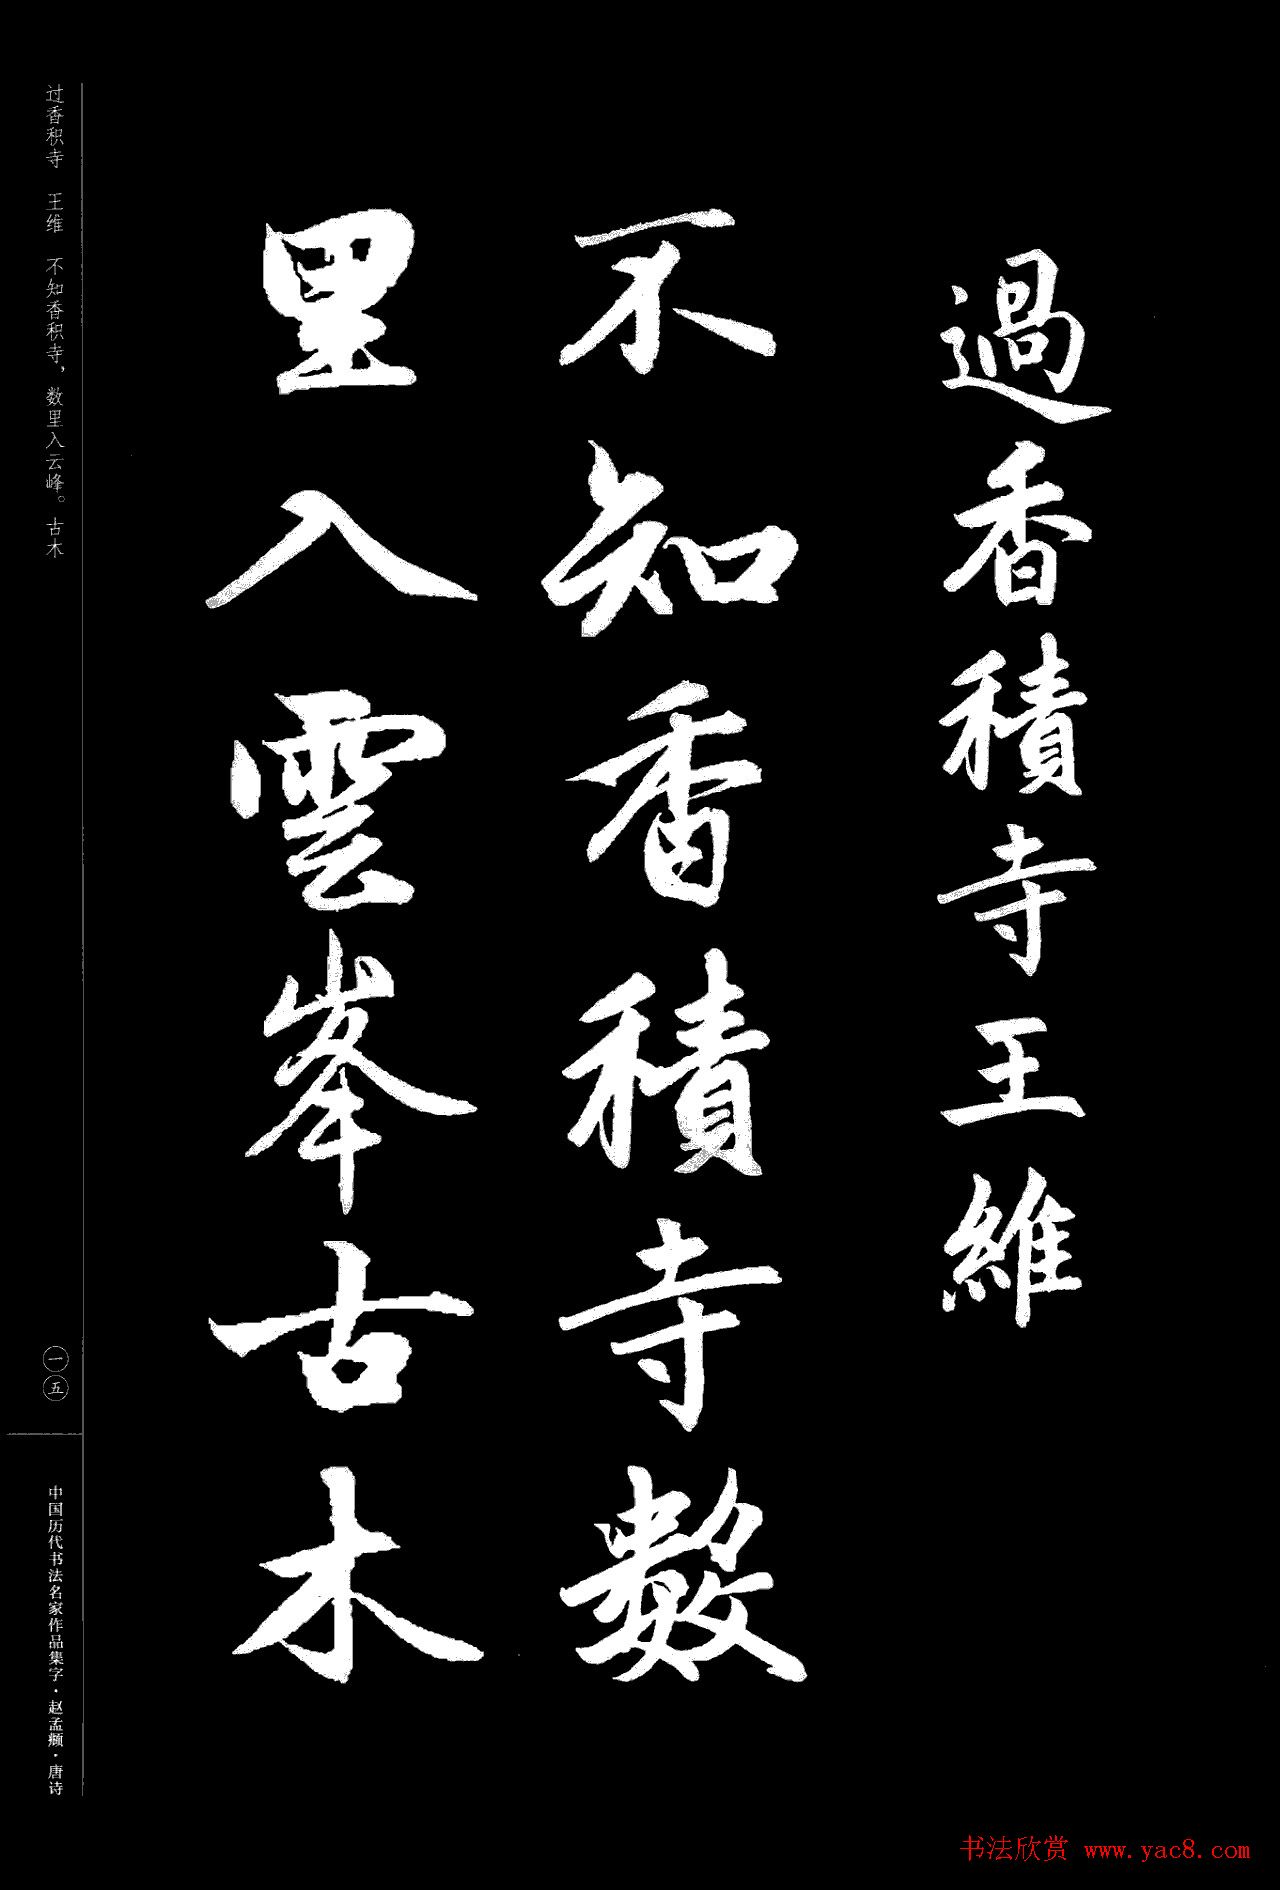 過香積寺王維
不知香積寺數
里入雲峯古木
过香积寺　王维　不知香积寺，数里入云峰。古木
一五
中国历代书法名家作品集字·赵孟頫·唐诗
书法欣赏 www.yac8.com